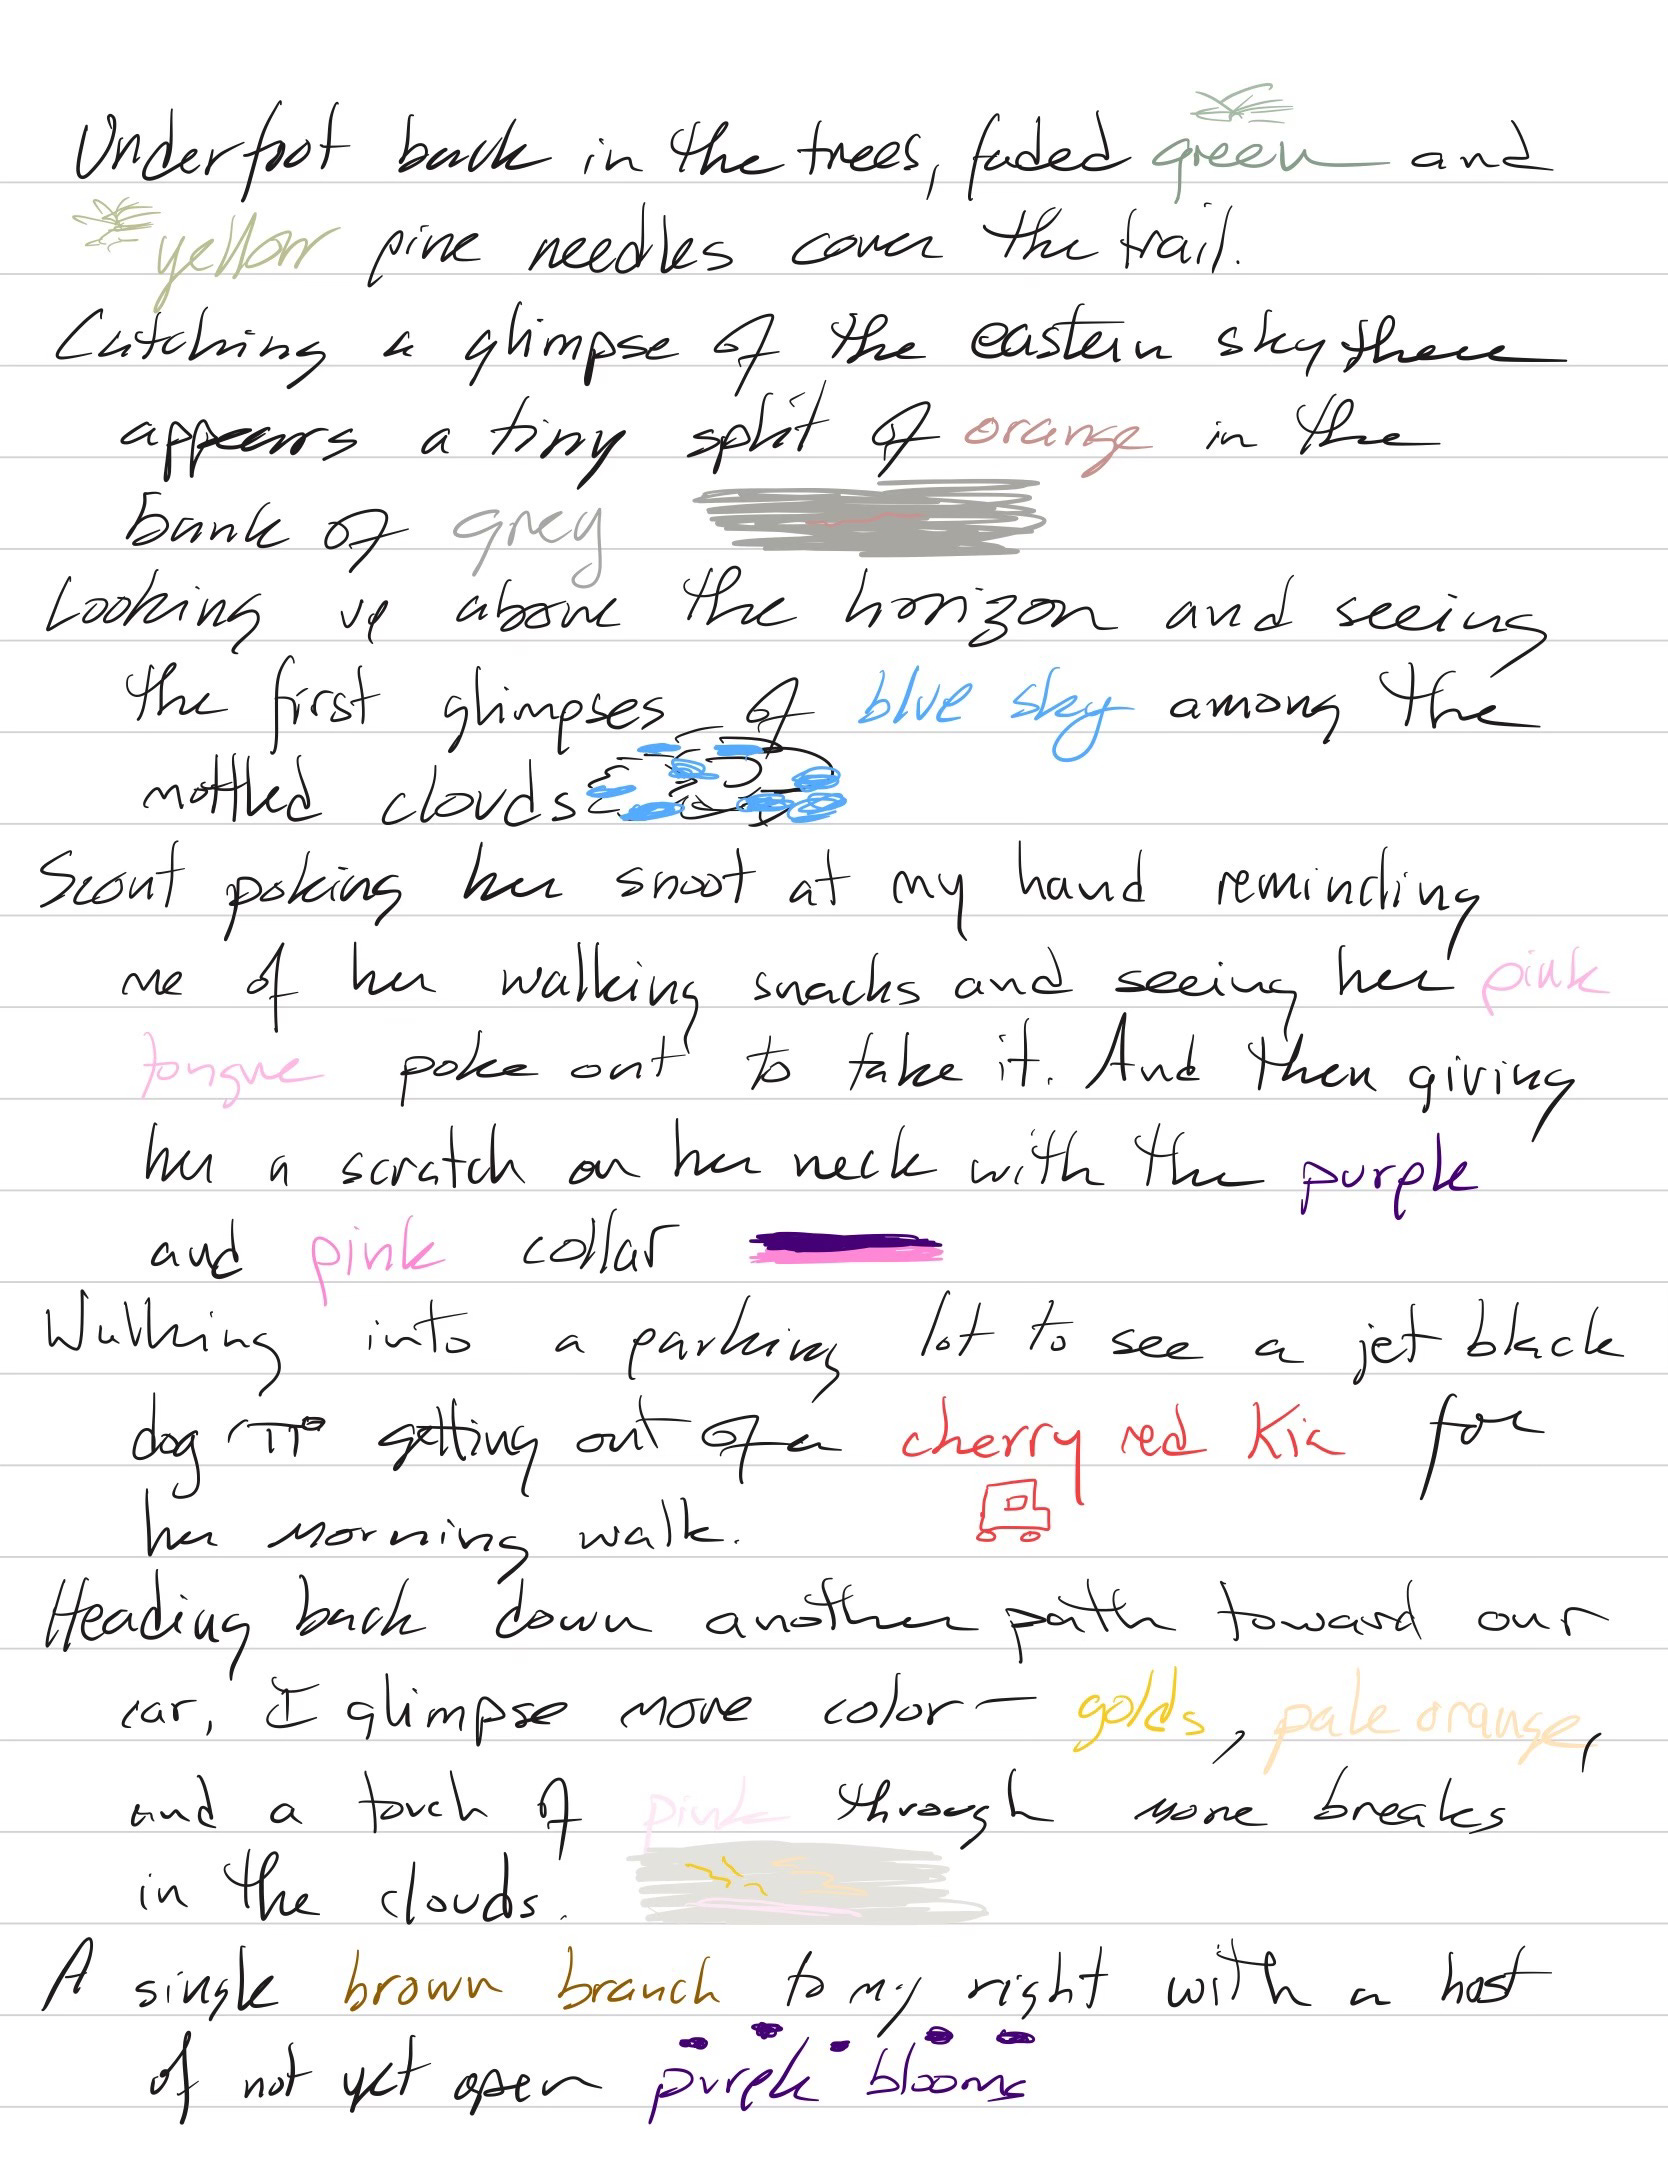 Underfoot back in the trees, faded green and
yellow pine needles cover the trail.
Catching a glimpse of the eastern sky there
appears a tiny split of orange in the
bank of grey
Looking up above the horizon and seeing
the first glimpses of blue sky among the
mottled clouds
Scout poking her snoot at my hand reminding
me of her walking snacks and seeing her pink
tongue poke out to take it. And then giving
her a scratch on her neck with the purple
and pink collar
Walking into a parking lot to see a jet black
dog getting out of a cherry red Kia for
her morning walk.
Heading back down another path toward our
car, I glimpse more color— golds, pale orange,
and a touch of pink through more breaks
in the clouds.
A single brown branch to my right with a host
of not yet open purple blooms